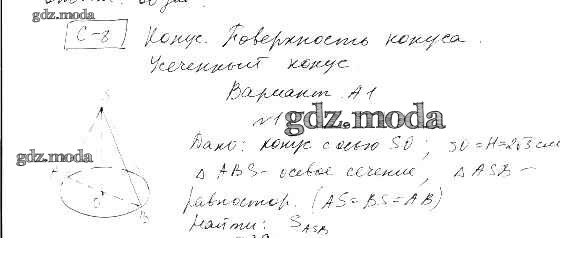 gdz.moda
С-8 Конус. Поверхность конуса.
Усеченный конус
Вариант А1
№1
gdz.moda
Дано: конус с осью SO; SO=H=2√3 см
gdz.moda
△ ABS - осевое сечение, △ ASB -
равностор. (AS=BS=AB)
Найти: S_ASB
S
A
O
B